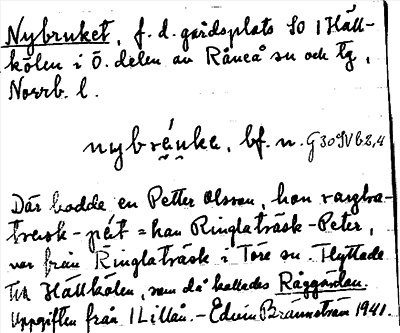 Nybruket, f. d. gårdsplats SO i Häll-
kölen i Ö. delen av Råneå sn och tg,
Norrb. l.
nybrɛ́ŋke, bf. n.
Där bodde en Petter Olsson, han
-pét = han Ringlaträsk-Peter,
var från Ringlaträsk i Töre sn. Flyttade
till Hällkölen, som då kallades Råggården.
Uppgiften från 1 Lillån. - Edvin Brännström 1941.